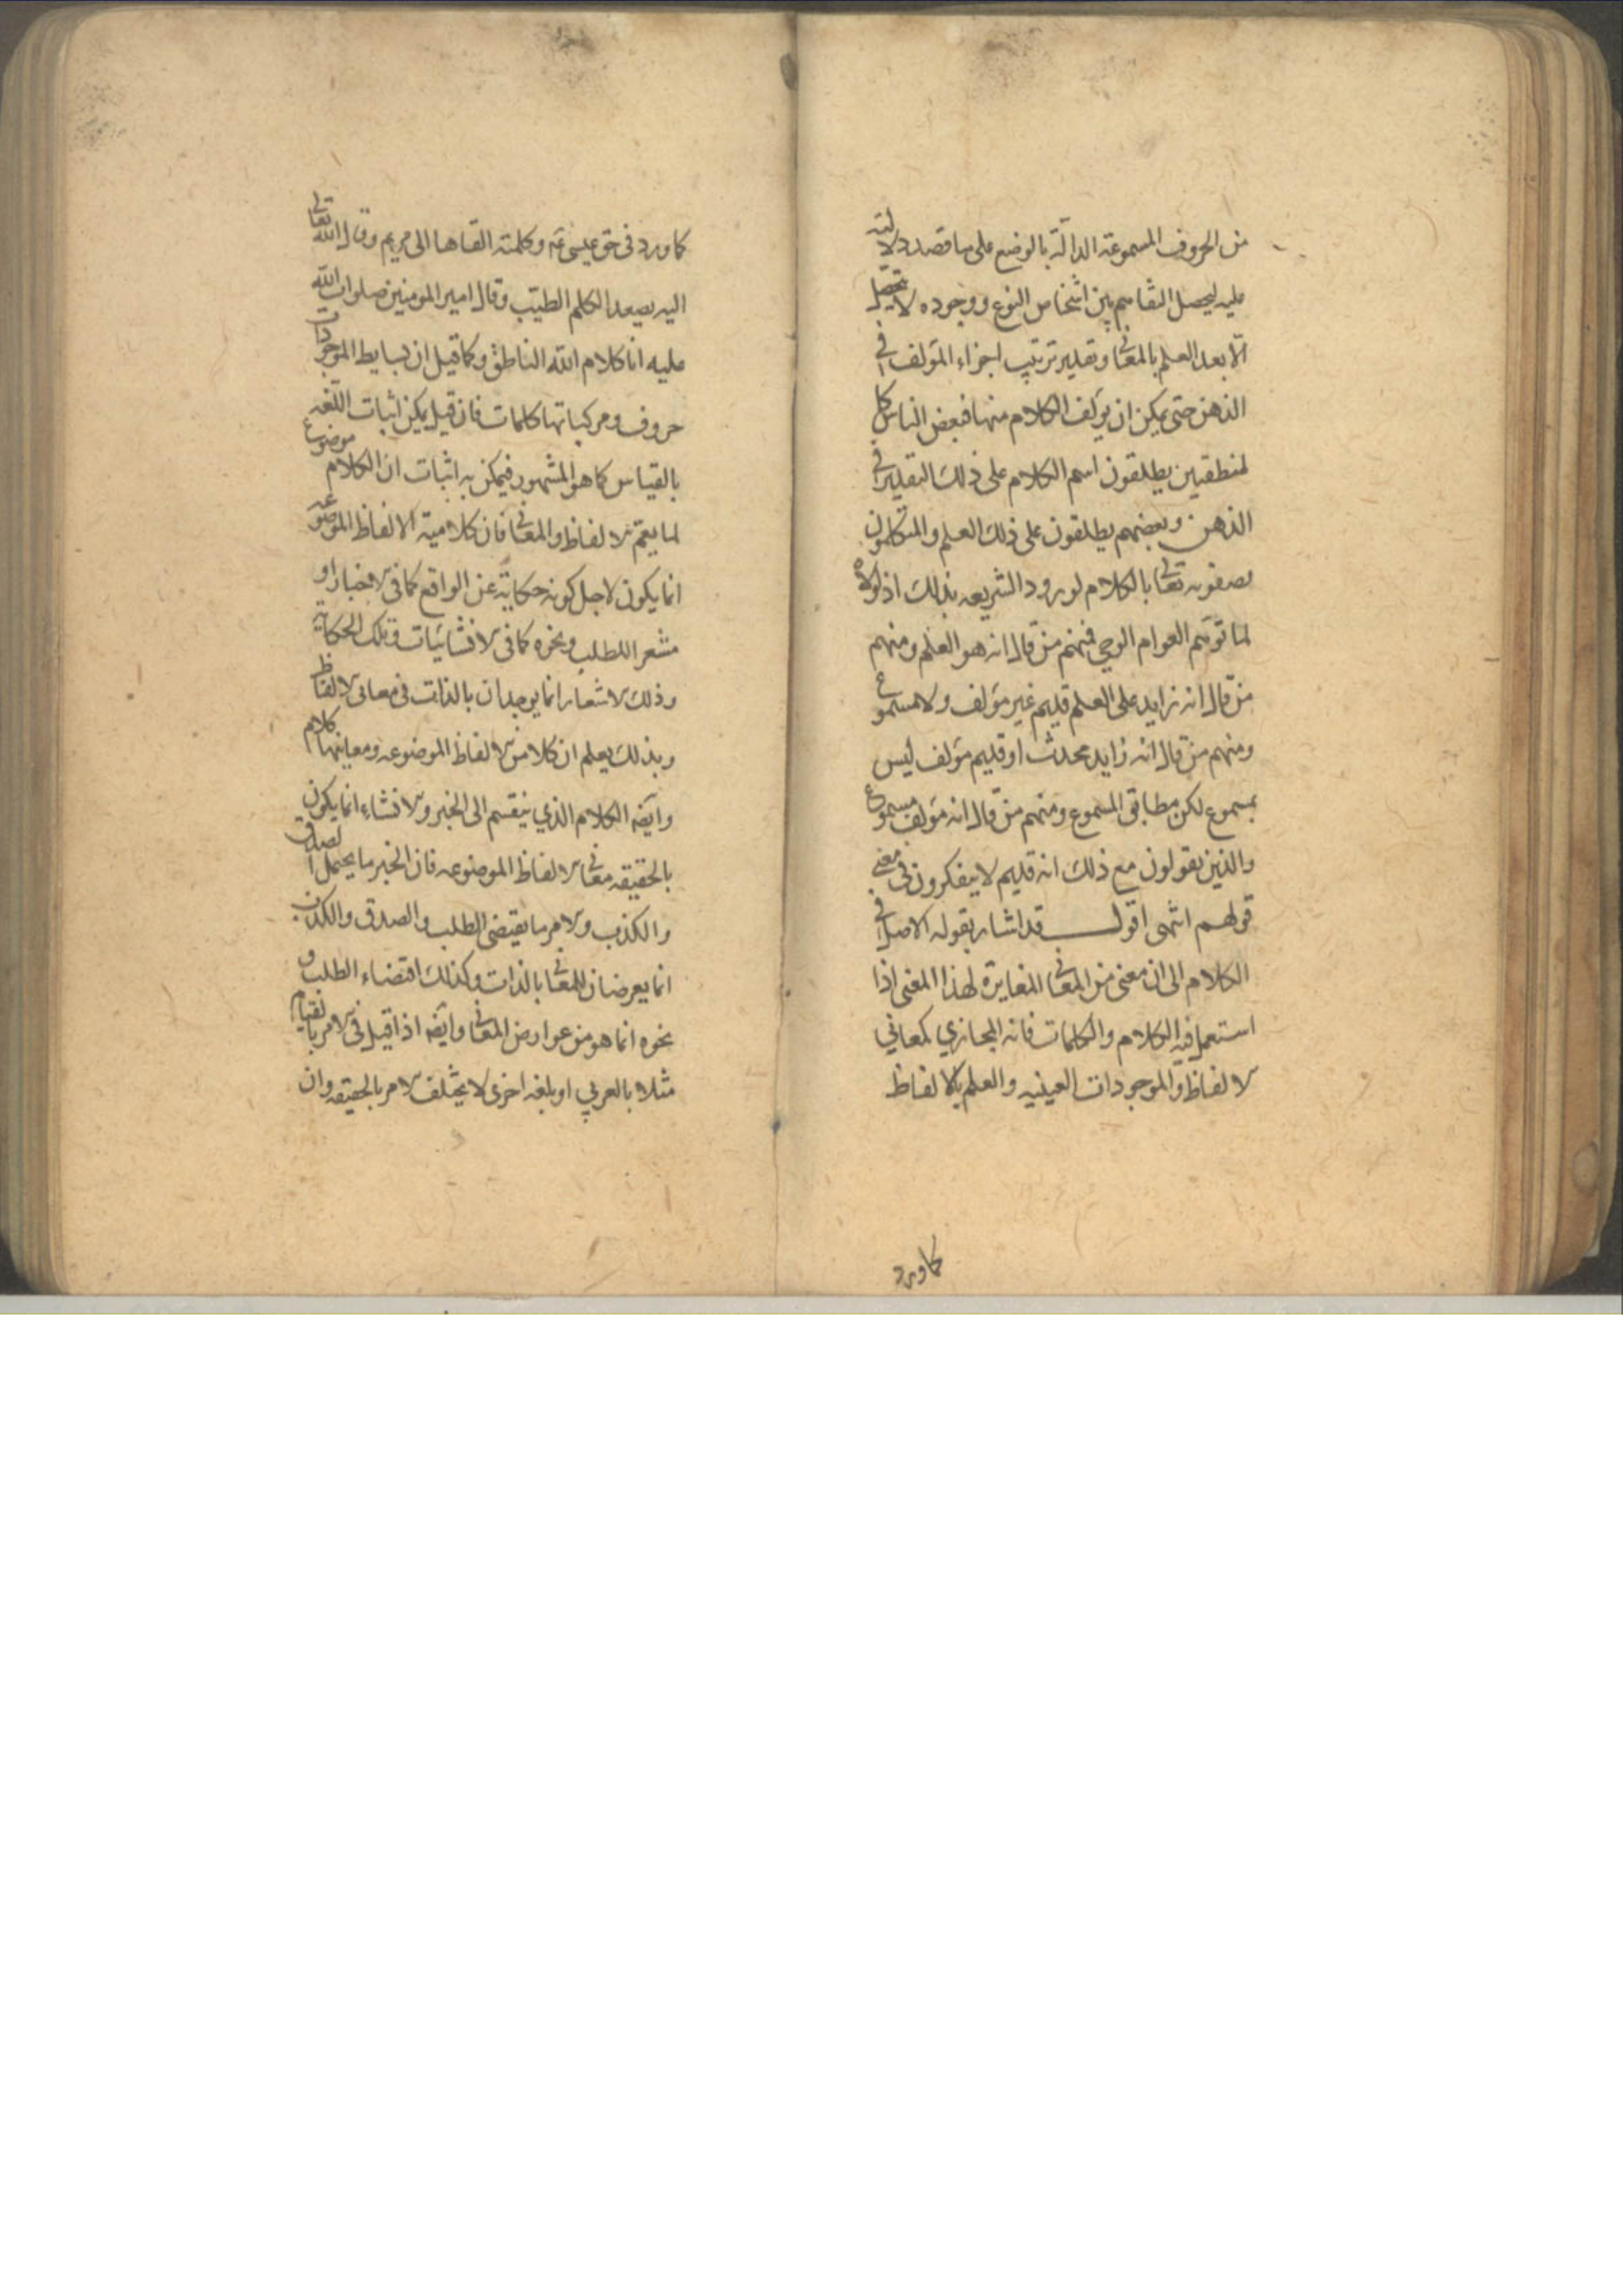 من الحروف المسموعة الدالة بالوضع على ما قصد دلالته
عليه ليحصل التفاهم بين اشخاص النوع ووجوده لا يتحصل
الا بعد العلم بالمعانى وتقدير ترتيب اجزاء المؤلف فى
الذهن حتى يمكن ان يؤلف الكلام منها فبعض الناس كا
لمنطقيين يطلقون اسم الكلام على ذلك التقدير فى
الذهن وبعضهم يطلقون على ذلك العلم والمتكلمون
يصفونه تعالى بالكلام لورود الشريعه بذلك اذ لولاه
لما توهم العوام الوحى فمنهم من قال انه هو العلم ومنهم
من قال انه زايد على العلم قديم غير مؤلف ولا مسموع
ومنهم من قال انه زايد محدث او قديم مؤلف ليس
بمسموع لكن مطابق المسموع ومنهم من قال انه مؤلف مسموع
والذين يقولون مع ذلك انه قديم لا يتفكرون فى معنى
قولهم انتهى اقول قد اشار بقوله الاصل فى
الكلام الى ان معنى من المعانى المغايرة لهذا المعنى اذا
استعمل فيه الكلام والكلمات فانه المجازي كمعاني
الالفاظ والموجودات العينيه والعلم بالالفاظ
كما ورد
كما ورد فى حق عيسى عم وكلمته القاها الى مريم وقال الله تعالى
اليه يصعد الكلم الطيب وقال امير المومنين صلوات الله
عليه انا كلام الله الناطق وكما قيل ان بسايط الموجودات
حروف ومركباتها كلمات فان قيل يمكن اثبات اللغه
بالقياس كما هو المشهور فيمكن به اثبات ان الكلام موضوع
لما يعم الالفاظ والمعانى فان كلامية الالفاظ الموضوعه
انما يكون لاجل كونه حكاية عن الواقع كما فى الاخبار او
مشعرا للطلب ونحوه كما فى الانشائيات وتلك الحكاية
وذلك الاشعار انما يوجدان بالذات فى معانى الالفاظ
وبذلك يعلم ان كلا من الالفاظ الموضوعه ومعانيها كلام
وايضه الكلام الذي ينقسم الى الخبر والانشاء انما يكون
بالحقيقه معانى الالفاظ الموضوعه فان الخبر ما يحتمل الصدق
والكذب والامر ما يقتضى الطلب والصدق والكذب
انما يعرضان للمعانى بالذات وكذلك اقتضاء الطلب و
نحوه انما هو من عوارض المعانى وايضه اذا قيل فى الامر بالقيام
مثلا بالعربي او بلغه اخرى لا يختلف الامر بالحقيقه وان